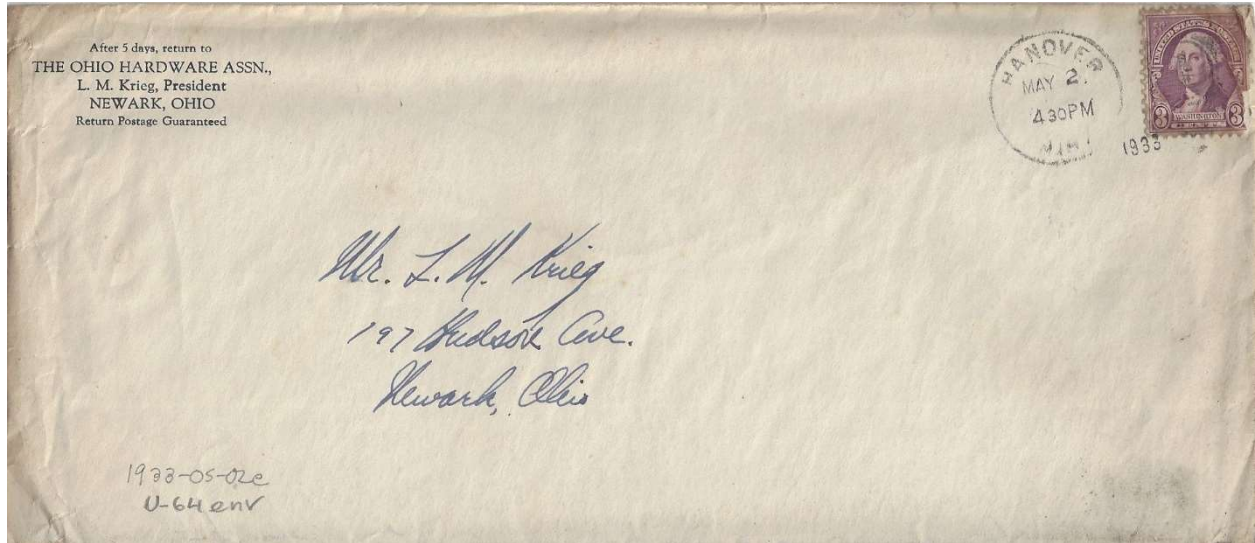 After 5 days, return to
THE OHIO HARDWARE ASSN.,
L. M. Krieg, President
NEWARK, OHIO
Return Postage Guaranteed
HANOVER
MAY 2
4 30 PM
1933
UNITED STATES POSTAGE
3 WASHINGTON 3
Mr. L. M. Krieg
197 Hudson Ave.
Newark, Ohio
1933-05-02e
U-64 env